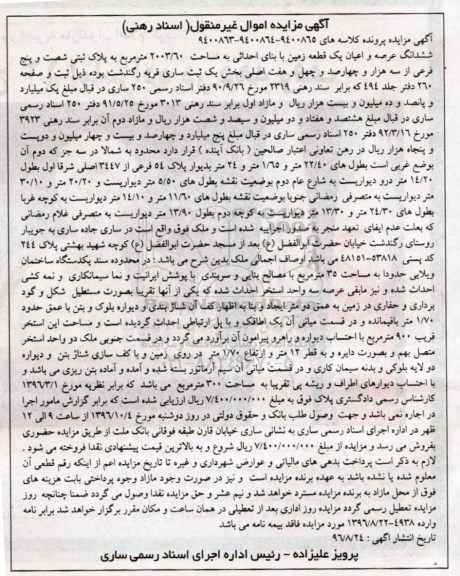 آگهی مزایده اموال غیرمنقول( اسناد رهنی)
آگهی مزایده پرونده کلاسه های ۹۴۰۰۸۶۵-۹۴۰۰۸۶۴-۹۴۰۰۸۶۳
ششدانگ عرصه و اعیان یک قطعه زمین با بنای احداثی به مساحت ۲۰۰۳/۶۰ مترمربع به پلاک ثبتی شصت و پنج
فرعی از سه هزار و چهارصد و چهل و هفت اصلی بخش یک ثبت ساری قریه رگندشت بوده ذیل ثبت و صفحه
۲۶۰ دفتر جلد ۴۹۴ که برابر سند رهنی ۲۳۱۹ مورخ ۹۰/۹/۲۶ دفتر اسناد رسمی ۲۵۰ ساری در قبال مبلغ یک میلیارد
و پانصد و ده میلیون و بیست هزار ریال و مازاد اول برابر سند رهنی ۳۰۱۳ مورخ ۹۱/۵/۲۵ دفتر ۲۵۰ اسناد رسمی
ساری در قبال مبلغ هشتصد و هفتاد و دو میلیون و سیصد و شصت هزار ریال و مازاد دوم آن برابر سند رهنی ۳۹۲۳
مورخ ۹۲/۳/۱۶ دفتر ۲۵۰ اسناد رسمی ساری در قبال مبلغ پنج میلیارد و چهارصد و بیست و چهار میلیون و دویست
و پنجاه هزار ریال در رهن تعاونی اعتبار صالحین ( بانک آینده ) قرار دارد محدود به شمالا در سه جز که دوم آن
بوضع غربی است بطول های ۲۲/۴۰ متر و ۱/۶۵ متر و ۲۴ متر بدیوار پلاک ۵۴ فرعی از ۳۴۴۷ اصلی شرقا اول بطول
۱۴/۲۰ متر درو دیواریست به شارع عام دوم بوضعیت نقشه بطول های ۵/۵۰ متر دیواریست و ۲۰/۲۰ متر و ۳۰/۱۰
متر دیواریست به متصرفی رمضانی جنوبا بوضعیت نقشه بطول های ۱۱/۶۰ متر و ۱۴/۱۰ متر دیواریست به کوچه غربا
بطول های ۲۴/۳۰ متر و ۱۳/۳۰ متر دیواریست به کوچه دوم بطول ۱۳/۹۰ متر دیواریست به متصرفی غلام رمضانی
که بعلت عدم ایفای تعهد منجر به صدور اجراییه شده است و ملک فوق واقع است در ساری جاده ساری به جویبار
روستای رگندشت خیابان حضرت ابوالفضل (ع) بعد از مسجد حضرت ابوالفضل (ع) کوچه شهید بهشتی پلاک ۲۴۴
کد پستی ۵۳۸۱۸-۴۸۱۵۱ می باشد اوصاف اجمالی ملک بدین شرح می باشد : در محدوده سند یکدستگاه ساختمان
ویلایی حدودا به مساحت ۳۵ مترمربع با مصالح بنایی و سربندی با پوشش ایرانیت و نما سیمانکاری و نمه کشی
احداث شده و نیز مابقی عرصه سه واحد استخر احداث شده که یکی از آنها تقریبا بصورت مستطیل شکل و گود
برداری و حفاری در زمین به عمق دو متر ایجاد و بنا به اظهار کف آن شناژ بندی و دیواره بلوک و بتن با عمق حدود
۱/۷۰ متر باقیمانده و در قسمت میانی آن یک اطاقک و با پل ارتباطی احداث گردیده است و مساحت این استخر
قریب ۹۰۰ مترمربع با احتساب دیواره و راهرو پیرامون آن برآورد می گردد و در قسمت جنوبی ملک دو واحد استخر
متصل بهم و بصورت دایره و به قطر ۱۲ متر و ارتفاع ۱/۷۰ متر در روی زمین و با کف سازی شناژ بتن و دیواره
دو لایه بلوکی و بدنه سیمان کاری و در قسمت میانی کف آرماتور بسته شده و آمده و آماده بتن ریزی می باشد و
با احتساب دیوارهای اطراف و ریشه پی تقریبا به مساحت ۳۰۰ مترمربع می باشد که برابر نظریه مورخ ۱۳۹۶/۳/۱
کارشناس رسمی دادگستری پلاک فوق به مبلغ ۷/۴۰۰/۰۰۰/۰۰۰ ریال ارزیابی شده است که برابر گزارش مامور اجرا
در اجاره نمی باشد و جهت وصول طلب بانک و حقوق دولتی در روز دوشنبه مورخ ۱۳۹۶/۱۰/۴ از ساعت ۹ الی ۱۲
ظهر در اداره اجرای اسناد رسمی ساری به نشانی ساری خیابان قارن طبقه فوقانی بانک ملت از طریق مزایده حضوری
بفروش می رسد و مزایده از مبلغ ۷/۴۰۰/۰۰۰/۰۰۰ ریال شروع و به بالاترین قیمت پیشنهادی نقدا فروخته می شود .
لازم به ذکر است پرداخت بدهی های مالیاتی و عوارض شهرداری و غیره تا تاریخ مزایده اعم از اینکه رقم قطعی آن
معلوم شده یا نشده باشد به عهده برنده مزایده است و نیز در صورت وجود مازاد وجوه پرداختی بابت هزینه های
فوق از محل مازاد به برنده مزایده مسترد خواهد شد و نیم عشر و حق مزایده نقدا وصول می گردد ضمنا چنانچه روز
مزایده تعطیل رسمی گردد مزایده روز اداری بعد از تعطیلی در همان ساعت و مکان مقرر برگزار خواهد شد برابر نامه
وارده ۴۹۳۸-۱۳۹۶/۸/۲۲ مورد مزایده فاقد بیمه نامه می باشد
تاریخ انتشار آگهی : ۹۶/۸/۲۴
پرویز علیزاده - رئیس اداره اجرای اسناد رسمی ساری